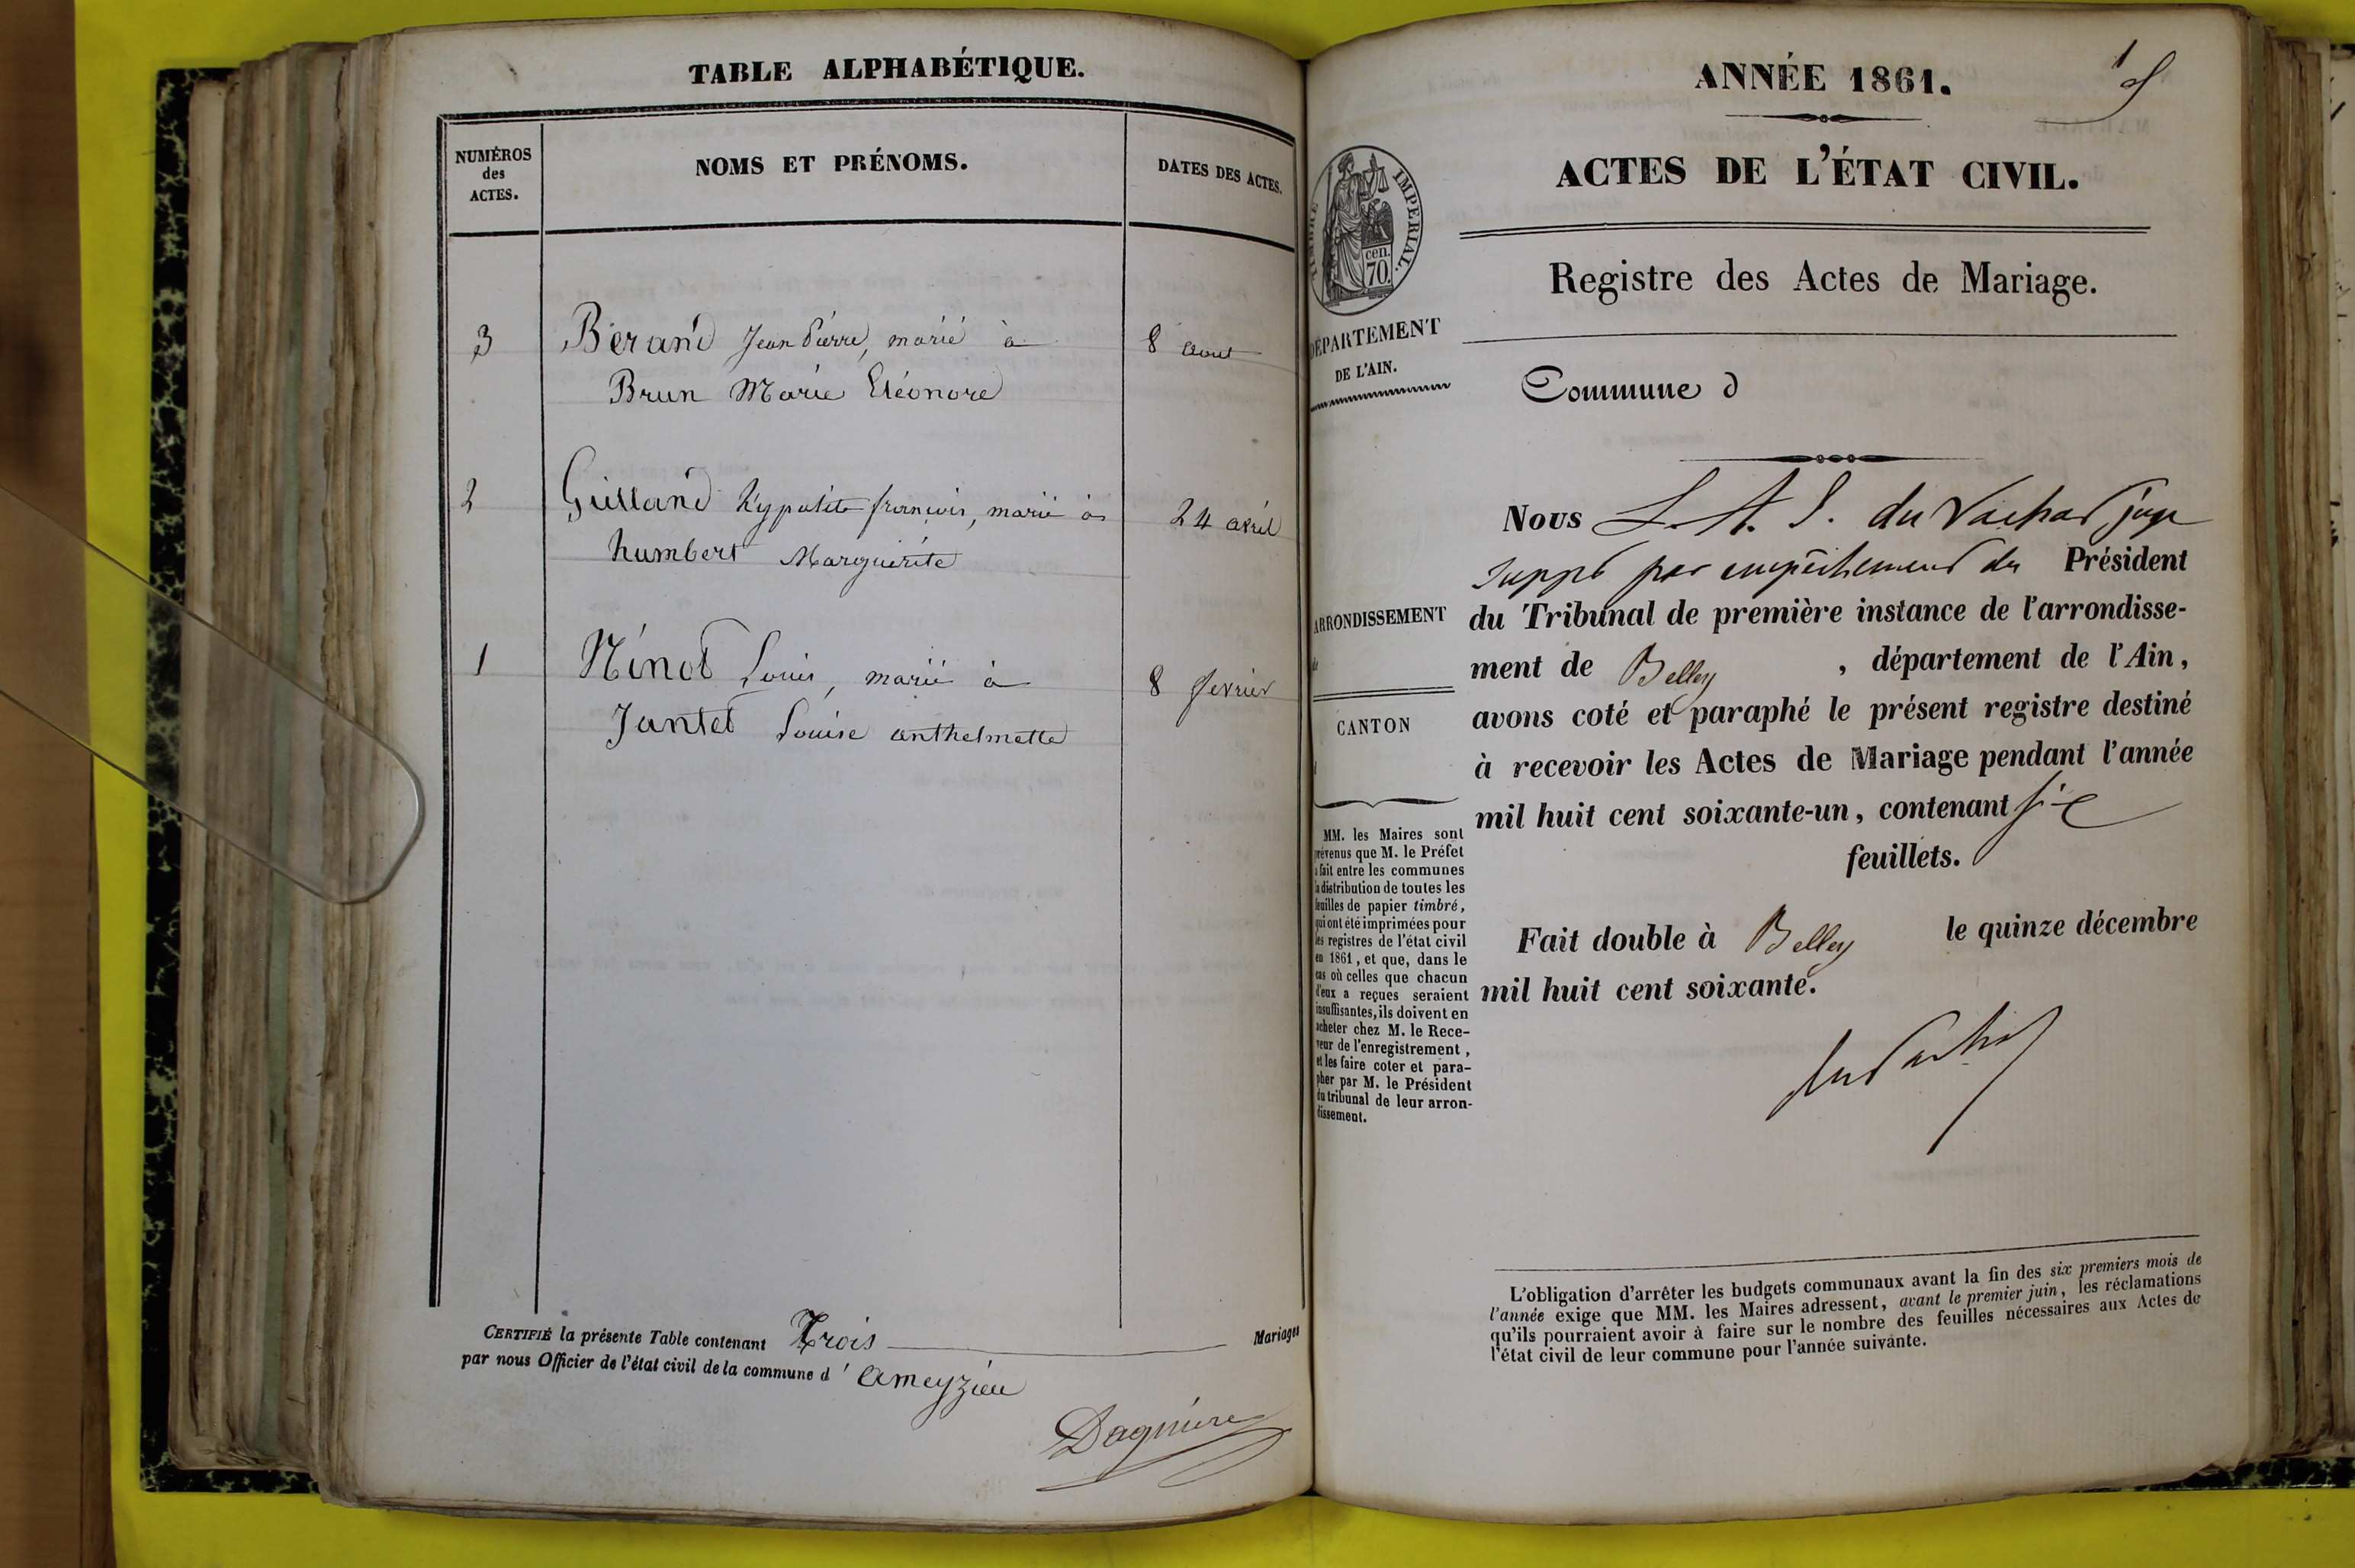 TABLE ALPHABÉTIQUE.
NUMÉROS
des
ACTES.
NOMS ET PRÉNOMS.
DATES DES ACTES.
3 Béraud Jean Pierre, marié à 8 aout
Brun Marie Eléonore
2 Guilland hypolite françois, marié à 24 avril
humbert Marguerite
1 Ninot Louis, marié à 8 fevrier
Jantet Louise anthelmette
CERTIFIÉ la présente Table contenant Trois Mariages
par nous Officier de l'état civil de la commune d' ameyzieu
Dagnière
ANNÉE 1861.
1
ACTES DE L'ÉTAT CIVIL.
TIMBRE IMPÉRIAL.
cen.
70.
Registre des Actes de Mariage.
DÉPARTEMENT
DE L'AIN.
Commune d
Nous L. A. S. du Vachat juge
suppt par empêchement du Président
ARRONDISSEMENT
de
du Tribunal de première instance de l'arrondisse-
ment de Belley, département de l'Ain,
CANTON
avons coté et paraphé le présent registre destiné
à recevoir les Actes de Mariage pendant l'année
mil huit cent soixante-un, contenant six
feuillets.
MM. les Maires sont
prévenus que M. le Préfet
a fait entre les communes
la distribution de toutes les
feuilles de papier timbré,
qui ont été imprimées pour
les registres de l'état civil
en 1861, et que, dans le
cas où celles que chacun
d'eux a reçues seraient
insuffisantes, ils doivent en
acheter chez M. le Rece-
veur de l'enregistrement,
et les faire coter et para-
pher par M. le Président
du tribunal de leur arron-
dissement.
Fait double à Belley le quinze décembre
mil huit cent soixante.
du Vachat
L'obligation d'arrêter les budgets communaux avant la fin des six premiers mois de
l'année exige que MM. les Maires adressent, avant le premier juin, les réclamations
qu'ils pourraient avoir à faire sur le nombre des feuilles nécessaires aux Actes de
l'état civil de leur commune pour l'année suivante.